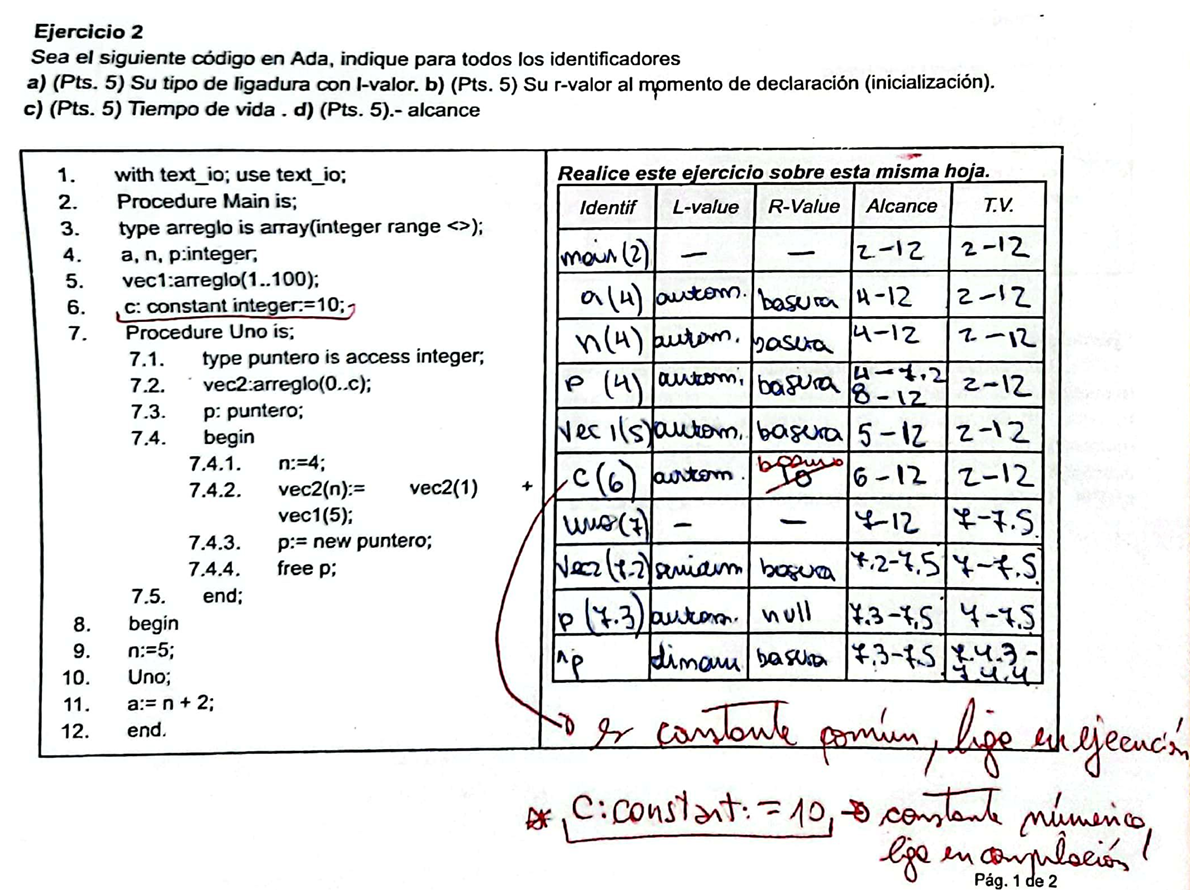 Ejercicio 2
Sea el siguiente código en Ada, indique para todos los identificadores
a) (Pts. 5) Su tipo de ligadura con l-valor. b) (Pts. 5) Su r-valor al momento de declaración (inicialización).
c) (Pts. 5) Tiempo de vida . d) (Pts. 5).- alcance
1. with text_io; use text_io;
2. Procedure Main is;
3. type arreglo is array(integer range <>);
4. a, n, p:integer;
5. vec1:arreglo(1..100);
6. c: constant integer:=10;
7. Procedure Uno is;
7.1. type puntero is access integer;
7.2. vec2:arreglo(0..c);
7.3. p: puntero;
7.4. begin
7.4.1. n:=4;
7.4.2. vec2(n):= vec2(1) +
vec1(5);
7.4.3. p:= new puntero;
7.4.4. free p;
7.5. end;
8. begin
9. n:=5;
10. Uno;
11. a:= n + 2;
12. end.
Realice este ejercicio sobre esta misma hoja.
Identif L-value R-Value Alcance T.V.
main (2) — — 2-12 2-12
a (4) autom. basura 4-12 2-12
n (4) autom. basura 4-12 2-12
p (4) autom. basura 4-7.2 8-12 2-12
vec 1(5) autom. basura 5-12 2-12
c (6) autom. basura 10 6-12 2-12
uno (7) — — 7-12 7-7.5
vec2 (7.2) semidim basura 7.2-7.5 7-7.5
p (7.3) autom. null 7.3-7.5 7-7.5
^p dinam basura 7.3-7.5 7.4.3-7.4.4
es constante común, liga en ejecución
* C:constant:=10, → constante númerica,
liga en compilación!
Pág. 1 de 2